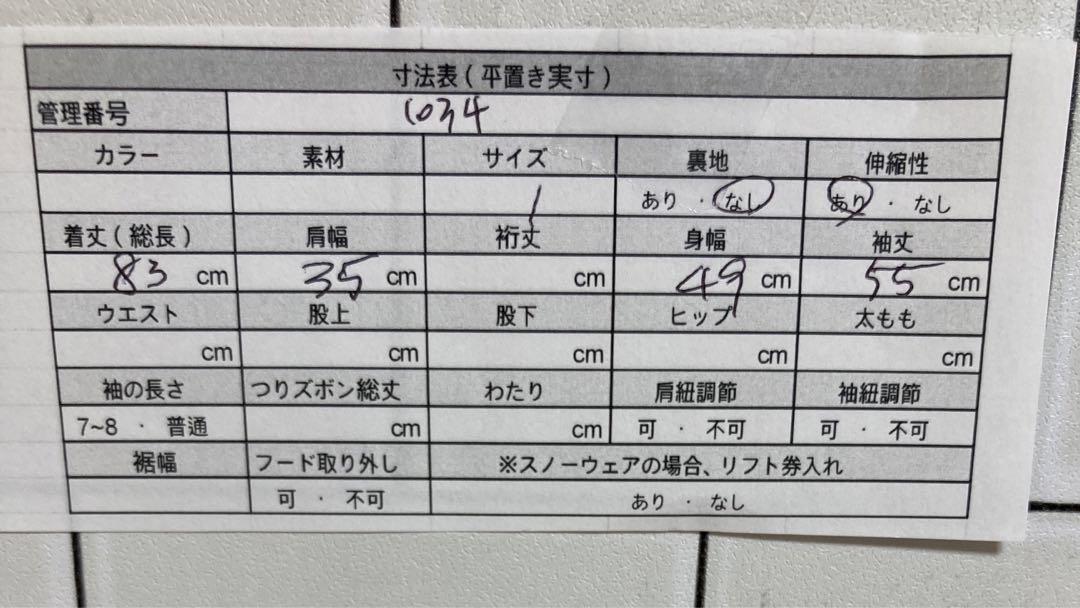 寸法表(平置き実寸)
管理番号 1034
カラー 素材 サイズ 裏地 伸縮性
1 あり・なし あり・なし
着丈(総長) 肩幅 裄丈 身幅 袖丈
83 cm 35 cm cm 49 cm 55 cm
ウエスト 股上 股下 ヒップ 太もも
cm cm cm cm cm
袖の長さ つりズボン総丈 わたり 肩紐調節 袖紐調節
7~8・普通 cm cm 可・不可 可・不可
裾幅 フード取り外し ※スノーウェアの場合、リフト券入れ
可・不可 あり・なし